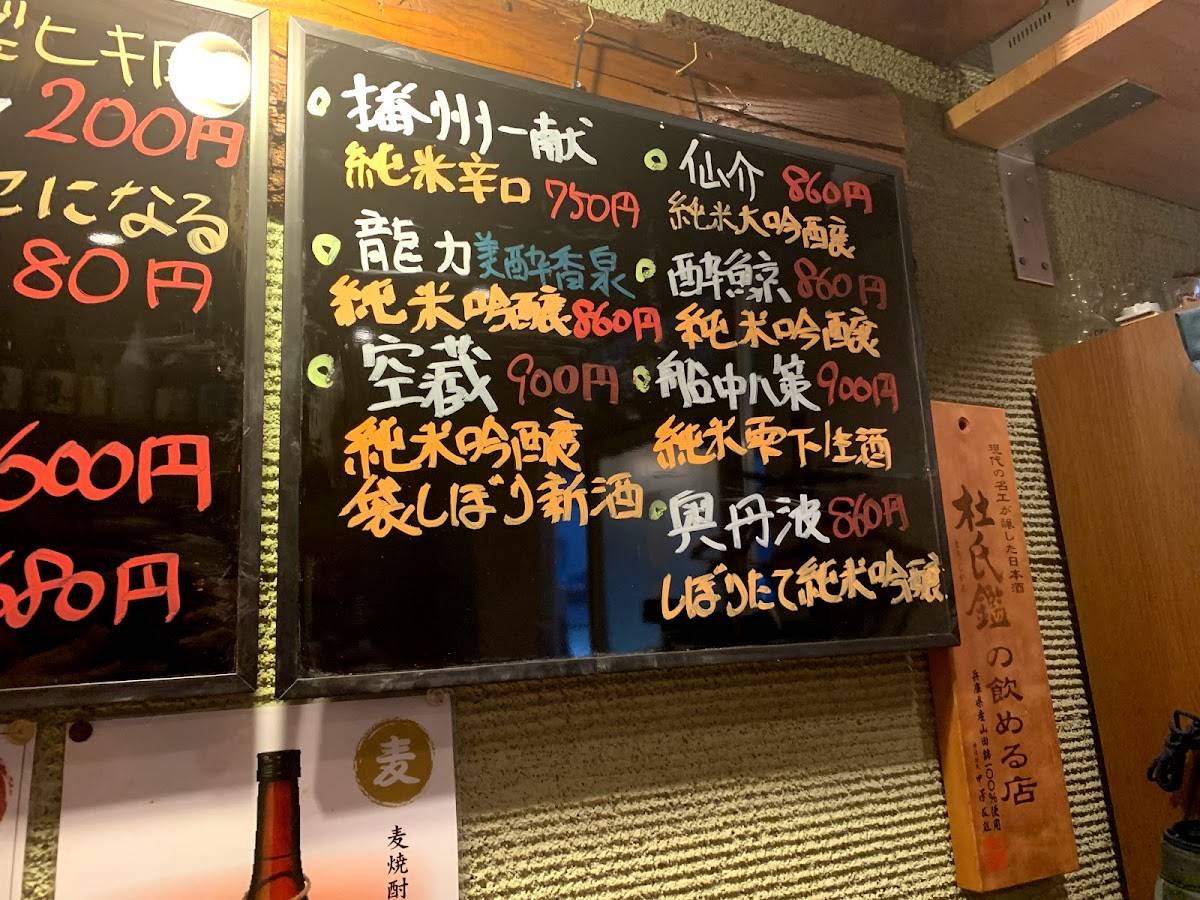 200円
になる
80円
600円
680円
播州一献
純米辛口 750円
龍力 美酔香泉
純米吟醸 860円
空蔵 900円
純米吟醸
袋しぼり新酒
仙介 860円
純米大吟醸
酔鯨 860円
純米吟醸
船中八策 900円
純米零下生酒
奥丹波 860円
しぼりたて純米吟醸
現代の名工が醸した日本酒
杜氏鑑の飲める店
兵庫県産山田錦一〇〇%使用
麦
麦焼酎